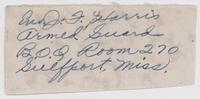 Ens. J. F. Harris
Armed Guard
B.O.Q Room 270
Gulfport, Miss.